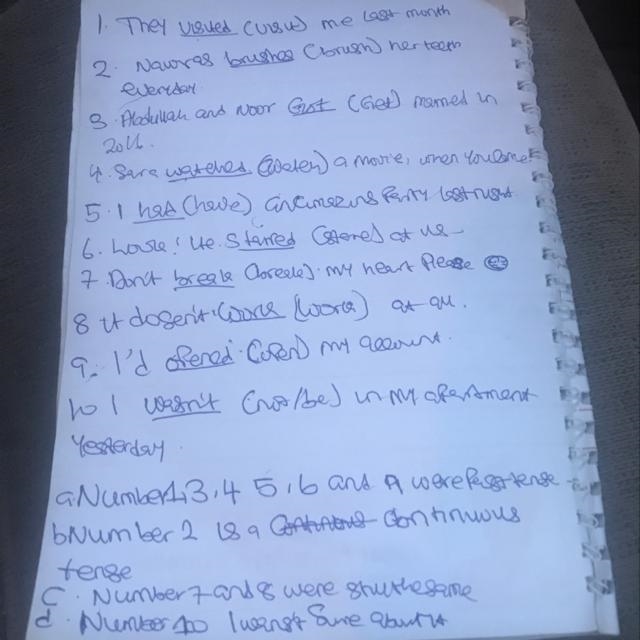 1. They visted (visit) me last month
2. Nawras brushes (brush) her teeth
everyday
3. Abdullah and Noor Got (Get) married in
2016.
4. Sara watches (watch) a movie, when
5. I had (have) an Party last night
6. Look! He Staired (stare) at us
7. Don't break (break) my heart Please
8 It doesn't work (work) at all.
9. I'd opened (open) my account.
10 I wasn't (not/be) in my apartment
Yesterday.
a. Number 1,3,4 5,6 and 9 were Past tense
b Number 2 is a continuous
tense
c. Number 7 and 8 were the same
d. Number 10 I wasnt Sure about it